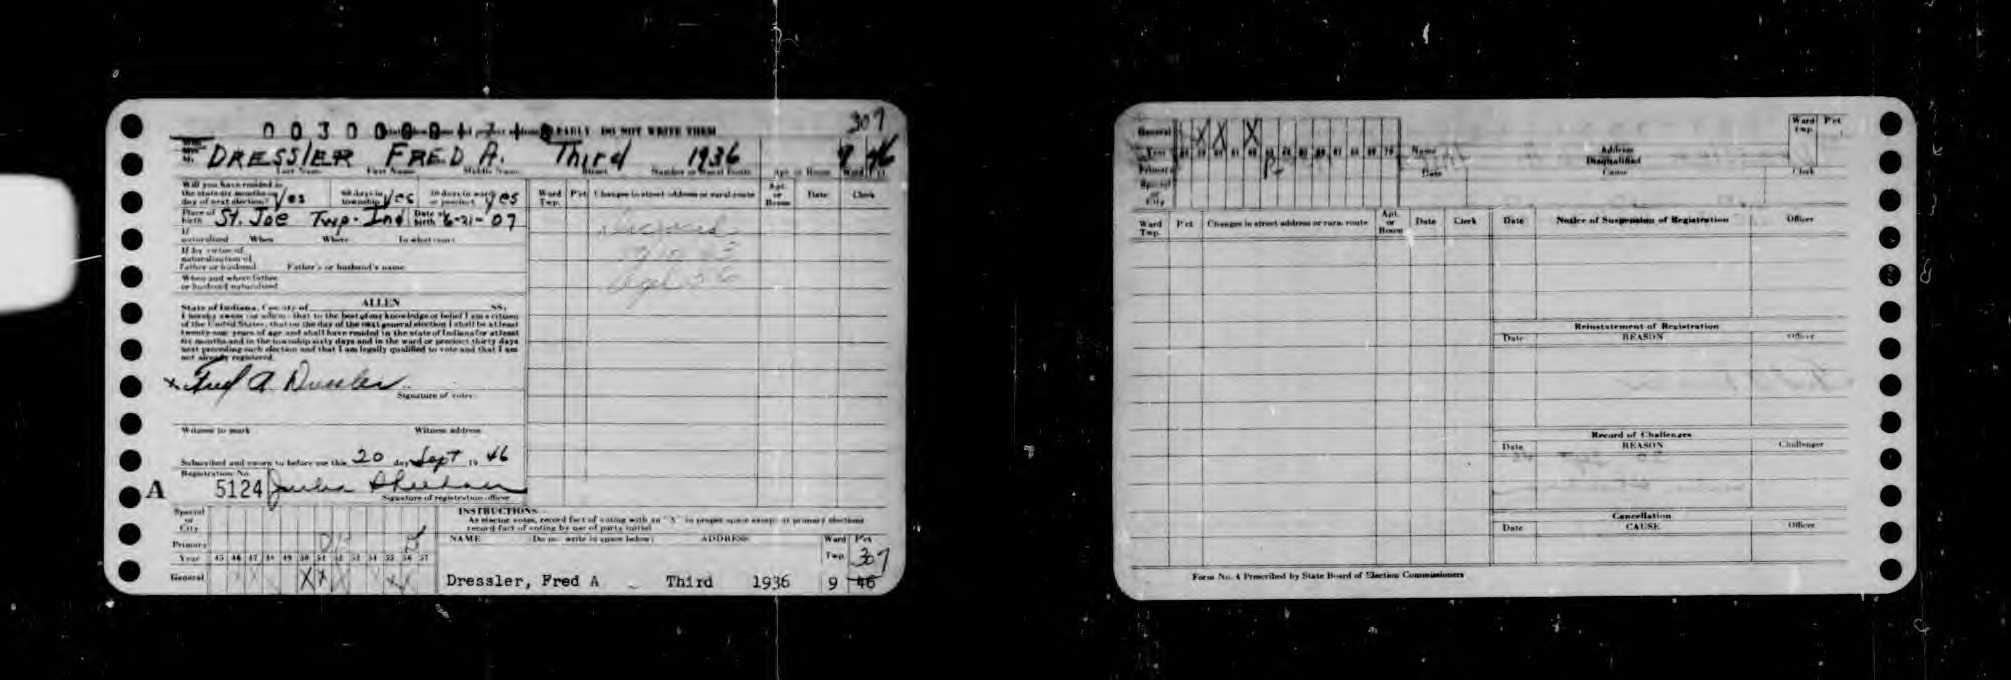 307
0 0 3 0 0 0 0 1 7 1 CLEARLY DO NOT WRITE THEM
DRESSLER FRED A. Third 1936 9 46
Last Name First Name Middle Name Street Number or Rural Route Apt. or Room Ward Pct
Will you have resided in the state six months on day of next election? Yes 60 days in township Yes 30 days in ward or precinct yes
Place of birth St. Joe Twp. Ind Date of birth 6-21-07
If naturalized When Where In what court
If by virtue of naturalization of Father or husband Father's or husband's name
When and where father or husband naturalized
Ward Twp. P'ct Changes in street address or rural route Apt. or Room Date Clerk
State of Indiana, County of ALLEN SS:
I hereby swear (or affirm) that to the best of my knowledge or belief I am a citizen
of the United States, that on the day of the next general election I shall be at least
twenty-one years of age and shall have resided in the state of Indiana for at least
six months and in the township sixty days and in the ward or precinct thirty days
next preceding such election and that I am legally qualified to vote and that I am
not already registered.
x Fred A Dressler
Signature of voter
Witness to mark Witness address
Subscribed and sworn to before me this 20 day Sept 19 46
Registration No.
A 5124 Julia Sheehan
Signature of registration officer
INSTRUCTIONS
As elector votes, record fact of voting with an "X" in proper space except at primary elections
record fact of voting by use of party initial
Special or City
Primary
Year 45 46 47 48 49 50 51 52 53 54 55 56 57
General X X
NAME Do not write in space below: ADDRESS Ward Twp. Pct
307
Dressler, Fred A Third 1936 9 46
General X X X
Year
Primary
Special or City
Name Address
Disqualified
Date Cause Clerk
Ward Twp. P'ct
Ward Twp. P'ct Changes in street address or rural route Apt. or Room Date Clerk
Date Notice of Suspension of Registration Officer
Reinstatement of Registration
Date REASON Officer
Record of Challenges
Date REASON Challenger
Cancellation
Date CAUSE Officer
Form No. 4 Prescribed by State Board of Election Commissioners